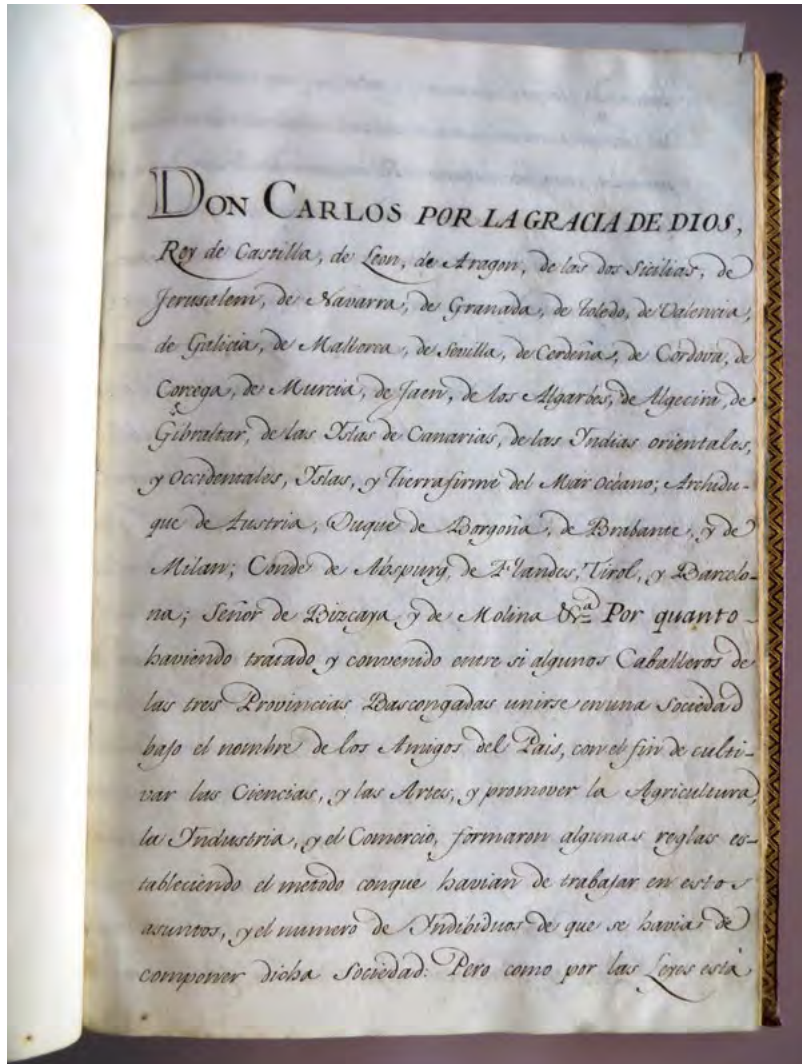 DON CARLOS POR LA GRACIA DE DIOS,
Rey de Castilla, de Leon, de Aragon, de las dos Sicilias, de
Jerusalem, de Navarra, de Granada, de Toledo, de Valencia,
de Galicia, de Mallorca, de Sevilla, de Cerdeña, de Córdova, de
Corcega, de Murcia, de Jaen, de los Algarbes, de Algecira, de
Gibraltar, de las Yslas de Canarias, de las Yndias orientales,
y Occidentales, Yslas, y Tierrafirme del Mar Océano; Archidu-
que de Austria, Duque de Borgoña, de Brabante, y de
Milan; Conde de Abspurg, de Flandes, Tirol, y Barcelo-
na; Señor de Bizcaya, y de Molina &ª Por quanto
haviendo tratado y convenido entre si algunos Caballeros de
las tres Provincias Bascongadas unirse en una Sociedad
bajo el nombre de los Amigos del Pais, con el fin de culti-
var las Ciencias, y las Artes, y promover la Agricultura,
la Yndustria, y el Comercio, formaron algunas reglas es-
tableciendo el metodo conque havian de trabajar en estos
asuntos, y el numero de Yndibiduos de que se havia de
componer dicha Sociedad: Pero como por las Leyes está